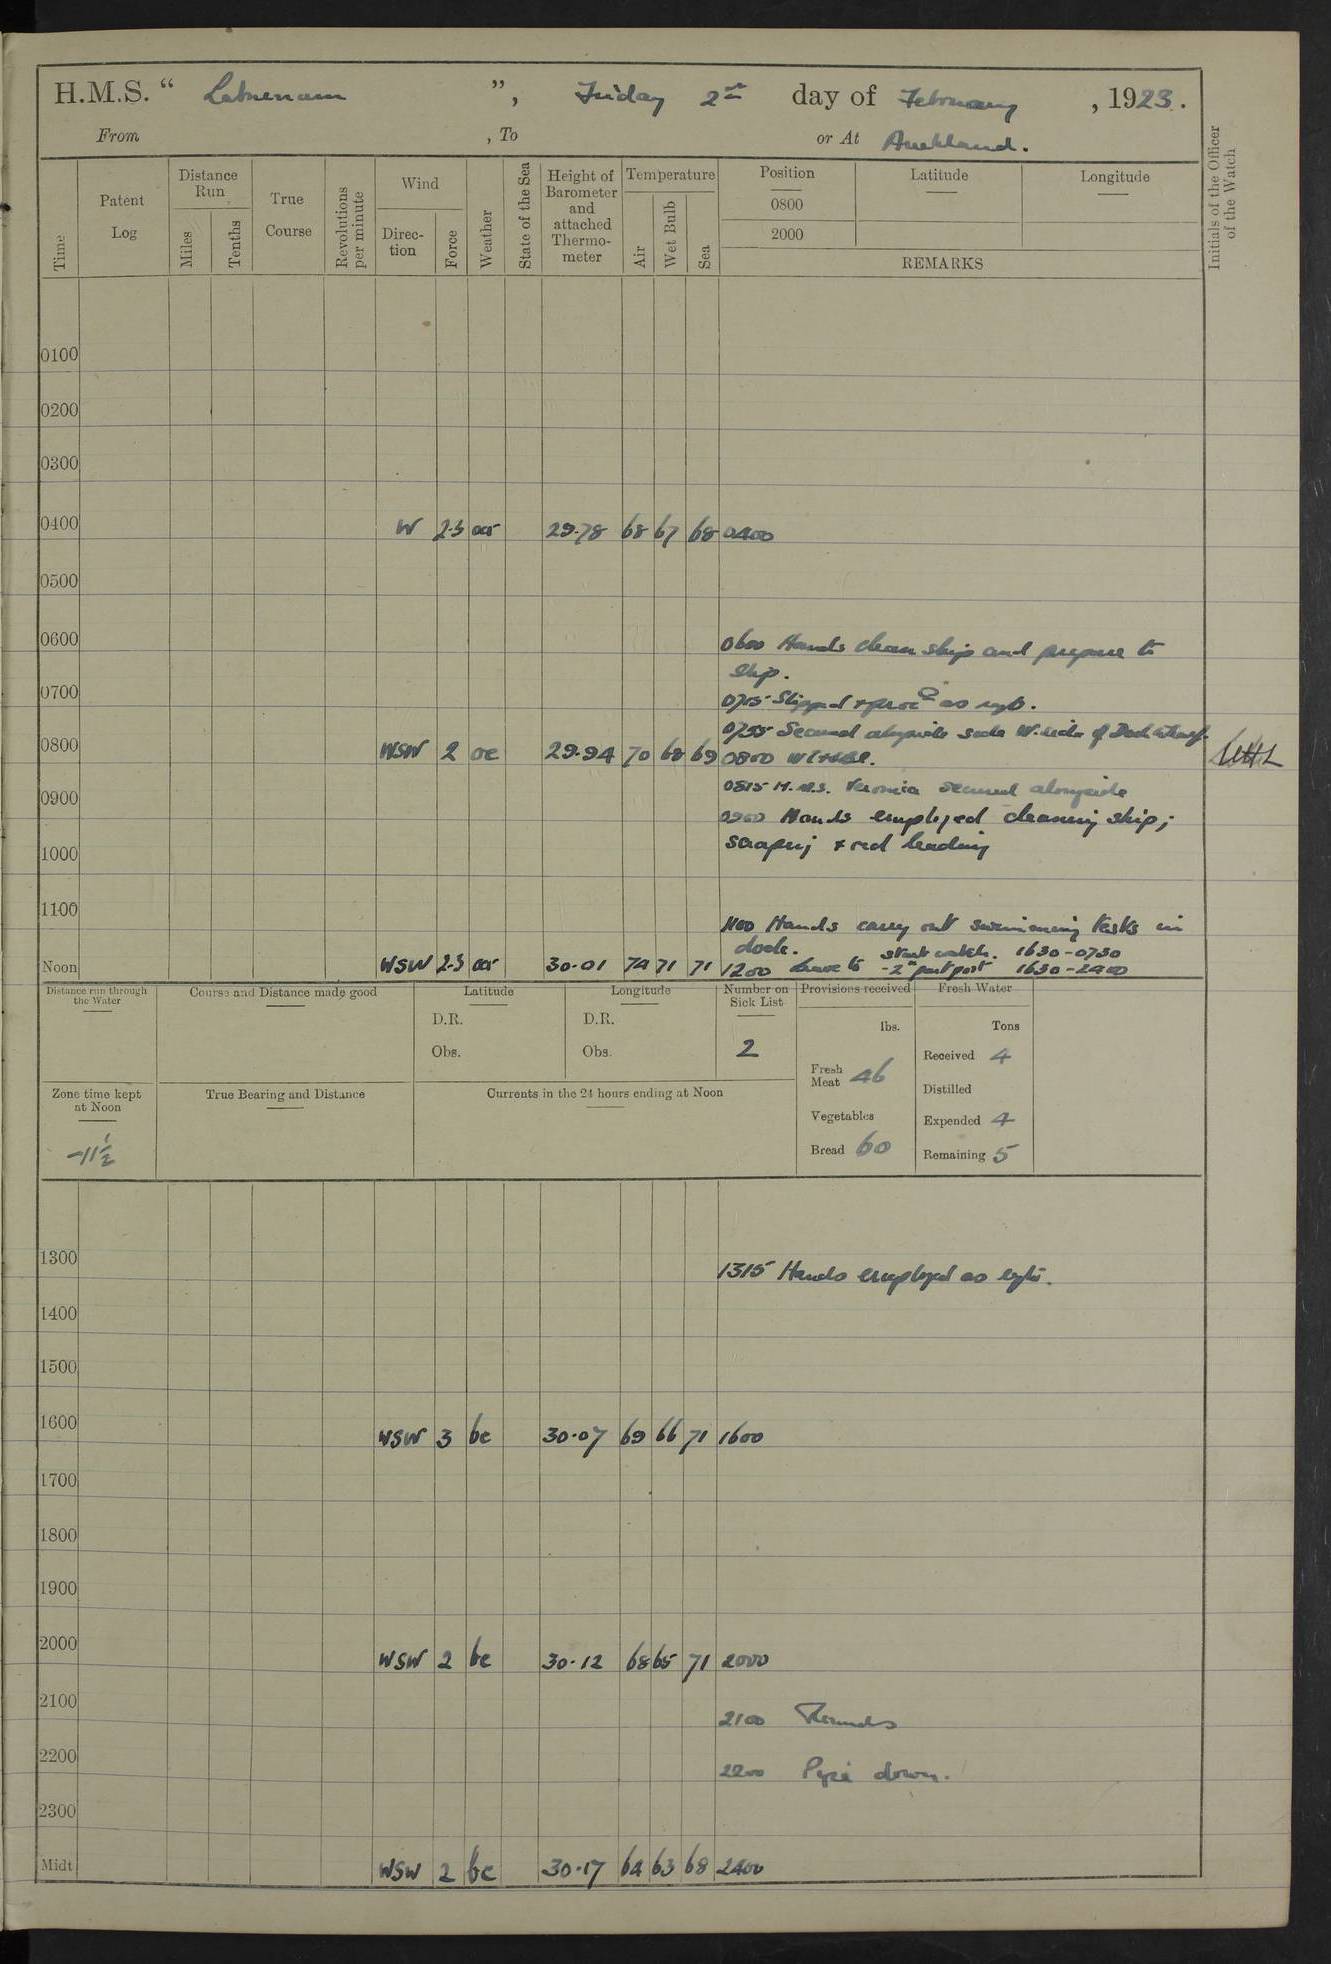 H.M.S. “ Laburnum ”, Friday 2nd day of February , 1923.
From , To or At Auckland.
Initials of the Officer of the Watch
Time
Patent Log
Distance Run
Miles
Tenths
True Course
Revolutions per minute
Wind
Direction
Force
Weather
State of the Sea
Height of Barometer and attached Thermometer
Temperature
Air
Wet Bulb
Sea
Position
0800
2000
Latitude
Longitude
REMARKS
0100
0200
0300
0400 W 2-3 29.78 68 67 68 0400
0500
0600 0600 Hands clean ship and prepare to
slip.
0700 0705 Slipped & procd as
0755 Secured alongside W. side of
0800 WSW 2 oc 29.94 70 68 69 0800
0815 H.M.S. Veronica secured alongside
0900 0900 Hands employed cleaning ship;
1000 scraping & red leading
1100 1100 Hands carry out swimming tests in
dock.
stard watch. 1630-0730
Noon WSW 2-3 30.01 74 71 71 1200 Leave to -2nd part port 1630-2400
Distance run through the Water
Course and Distance made good
Latitude
D.R.
Obs.
Longitude
D.R.
Obs.
Number on Sick List
2
Provisions received
lbs.
Fresh Meat 46
Vegetables
Bread 60
Fresh Water
Tons
Received 4
Distilled
Expended 4
Remaining 5
Zone time kept at Noon
-11½
True Bearing and Distance
Currents in the 24 hours ending at Noon
1300 1315 Hands employed as
1400
1500
1600 WSW 3 bc 30.07 69 66 71 1600
1700
1800
1900
2000 WSW 2 bc 30.12 68 65 71 2000
2100 2100 Rounds
2200 2200 Pipe down.
2300
Midt WSW 2 bc 30.17 64 63 68 2400